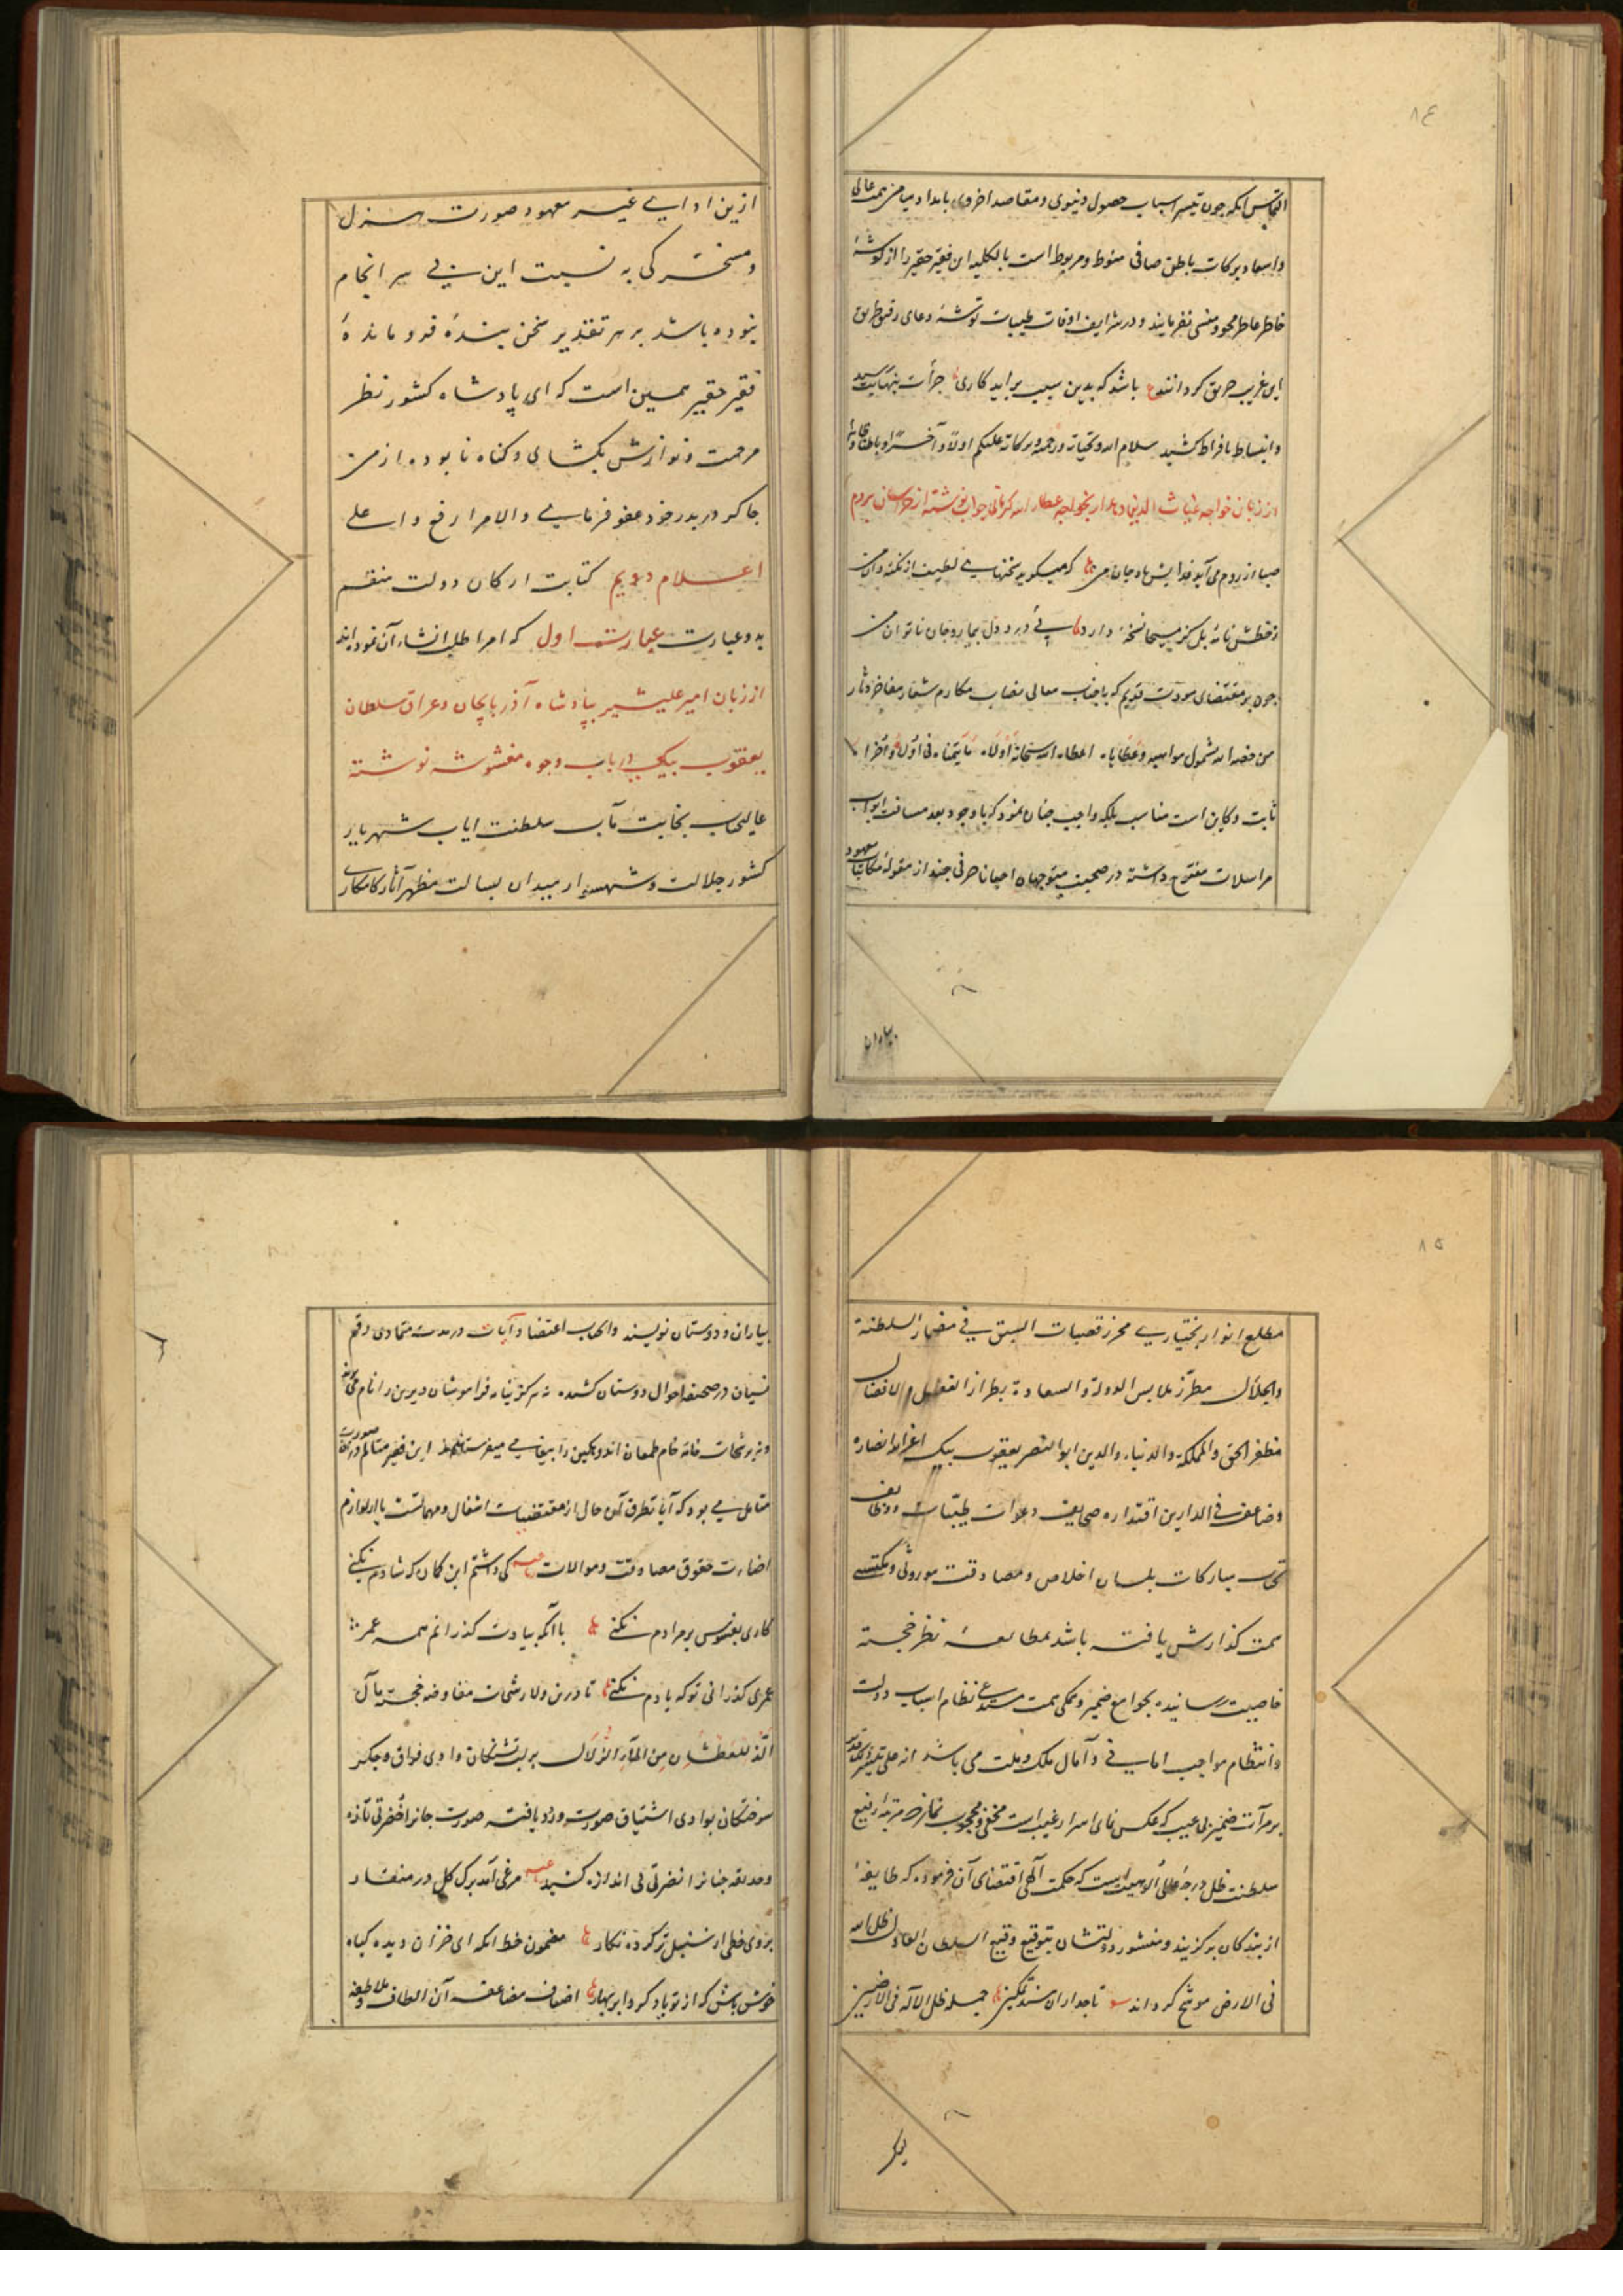 ۸۴
التماس آنکه چون تیسر اسباب حصول دنیوی و مقاصد اخروی بامداد میامن همت عالی
و اسعاد برکات باطن صافی منوط و مربوط است بالکلیه این فقیر حقیر را از گوشهٔ
خاطر عاطر محو و منسی نفرمایند و در شرایف اوقات طیبات توشهٔ دعای رفیق طریق
این غریب حریق گردانند ع باشد که بدین سبب برآید کاری جرأت بنهایت رسید
و انبساط بافراط کشید سلام الله و تحیاته و رحمته و برکاته علیکم اولاً و آخراً و باطنا و ظاهرا
از زبان خواجه غیاث الدین دهدار بخواجه عطاء الله کرمانی جواب نوشته از خراسان بروم
صبا از روم می آید فدایش باد جان من که میگوید سخنهای لطیف از نکته دان من
ز خطش نامهٔ بل کز مسیحا نسخهٔ دارد پی درد دل بیمار و جان ناتوان من
چون بر مقتضای مودت قدیم که باجناب معالی نصاب مکارم شعار مفاخر دثار
من خصه الله بشمول مواهبه و عطایاه اعطاه الله سبحانه اولاه ما یتمناه فی اولاه و اخراه
ثابت و کاین است مناسب بلکه واجب چنان نمود که با وجود بعد مسافت ابواب
مراسلات مفتوح داشته در صحبت متوجهان احیانا حرفی چند از مقوله مکاتبات معهود
از این ادای غیر معهود صورت هزل
و مسخرگی به نسبت این بی سر انجام
نبوده باشد بر هر تقدیر سخن بندهٔ فرو ماندهٔ
فقیر حقیر همین است که ای پادشاه کشور نظر
مرحمت و نوازش بگشای و گناه نابوده از من
چاکر در بدر خود عفو فرمای والامر ارفع واعلی
اعلام دویم کتابت ارکان دولت منقسم
به دو عبارت عبارت اول که امرا طلب انشاء آن نموده اند
از زبان امیر علیشیر بپادشاه آذربایجان و عراق سلطان
یعقوب بیک در باب وجوه مغشوشه نوشته
عالیجناب نجابت مآب سلطنت ایاب شهریار
کشور جلالت و شهسوار میدان بسالت مظهر آثار کامکاری
۸۵
مطلع انوار بختیاری محرز قصبات السبق فی مضمار السلطنة
والجلال مطرز ملابس الدولة والسعادة بطراز الفضل والافضال
مظفر الحق والمملکة والدنیا والدین ابوالنصر یعقوب بیک اعز الله انصاره
و ضاعف فی الدارین اقتداره صحایف دعوات طیبات و وظایف
تحیات مبارکات بلسان اخلاص و مصادقت موروثی و مکتسبی
سمت گذارش یافته باشد بمطالعهٔ نظر خجسته
خاصیت رسانیده بجوامع ضمیر و همگی همت مستدعی نظام اسباب دولت
و انتظام مواجب امانی و آمال ملک و ملت می باشد انه علی
بر مرآت ضمیر بی عیب که عکس نمای اسرار غیب است مخفی و محجوب نماند که مرتبهٔ رفیع
سلطنت ظل درجهٔ علیای الوهیت است که حکمت الهی اقتضای آن فرموده که طایفهٔ
از بندگان برگزیند و منشور دولتشان بتوقیع وقیع السلطان العادل ظل الله
فی الارض موشح گرداند تاجداران مسند تمکین جمله ظل الاله فی الارضین
بیاران و دوستان نویسند و الجناب اعتضاد آیات در مدت متمادی رقم
نسیان در صحیفه احوال دوستان کشیده نه هرگز بنامه فراموشان دیرین را نام می برند
و نه برشحات خانه خام طمعان اندوهگین را پیغامی میفرستند این فقیر متالم در
متامل می بود که آیا تطرق این حال از مقتضیات اشغال و مهماتست یا از لوازم
اضاعت حقوق مصادقت و موالات کی داشتم این گمان که شادم نکنی
کاری بفسوس بر مرادم نکنی با آنکه بیادت گذرانم همه عمر
عمری گذرانی تو که یادم نکنی تا درین ولا رشحات مفاوضه خجسته مآل
الذ للعطشان من الماء الزلال بر لب تشنگان وادی فراق و جگر
سوختگان بوادی اشتیاق صورت ورود یافته صورت جانرا خضرتی تازه
و حدیقه جنانرا نضرتی بی اندازه بخشید مرغی آمد برگ گل در منقار
بروی خطی از سنبل تر کرده نگار مضمون خط آنکه ای خزان دیده گیاه
خوش باش که از تو یاد کرد ابر بهار اضعاف مضاعف آن الطاف و ملاطفه